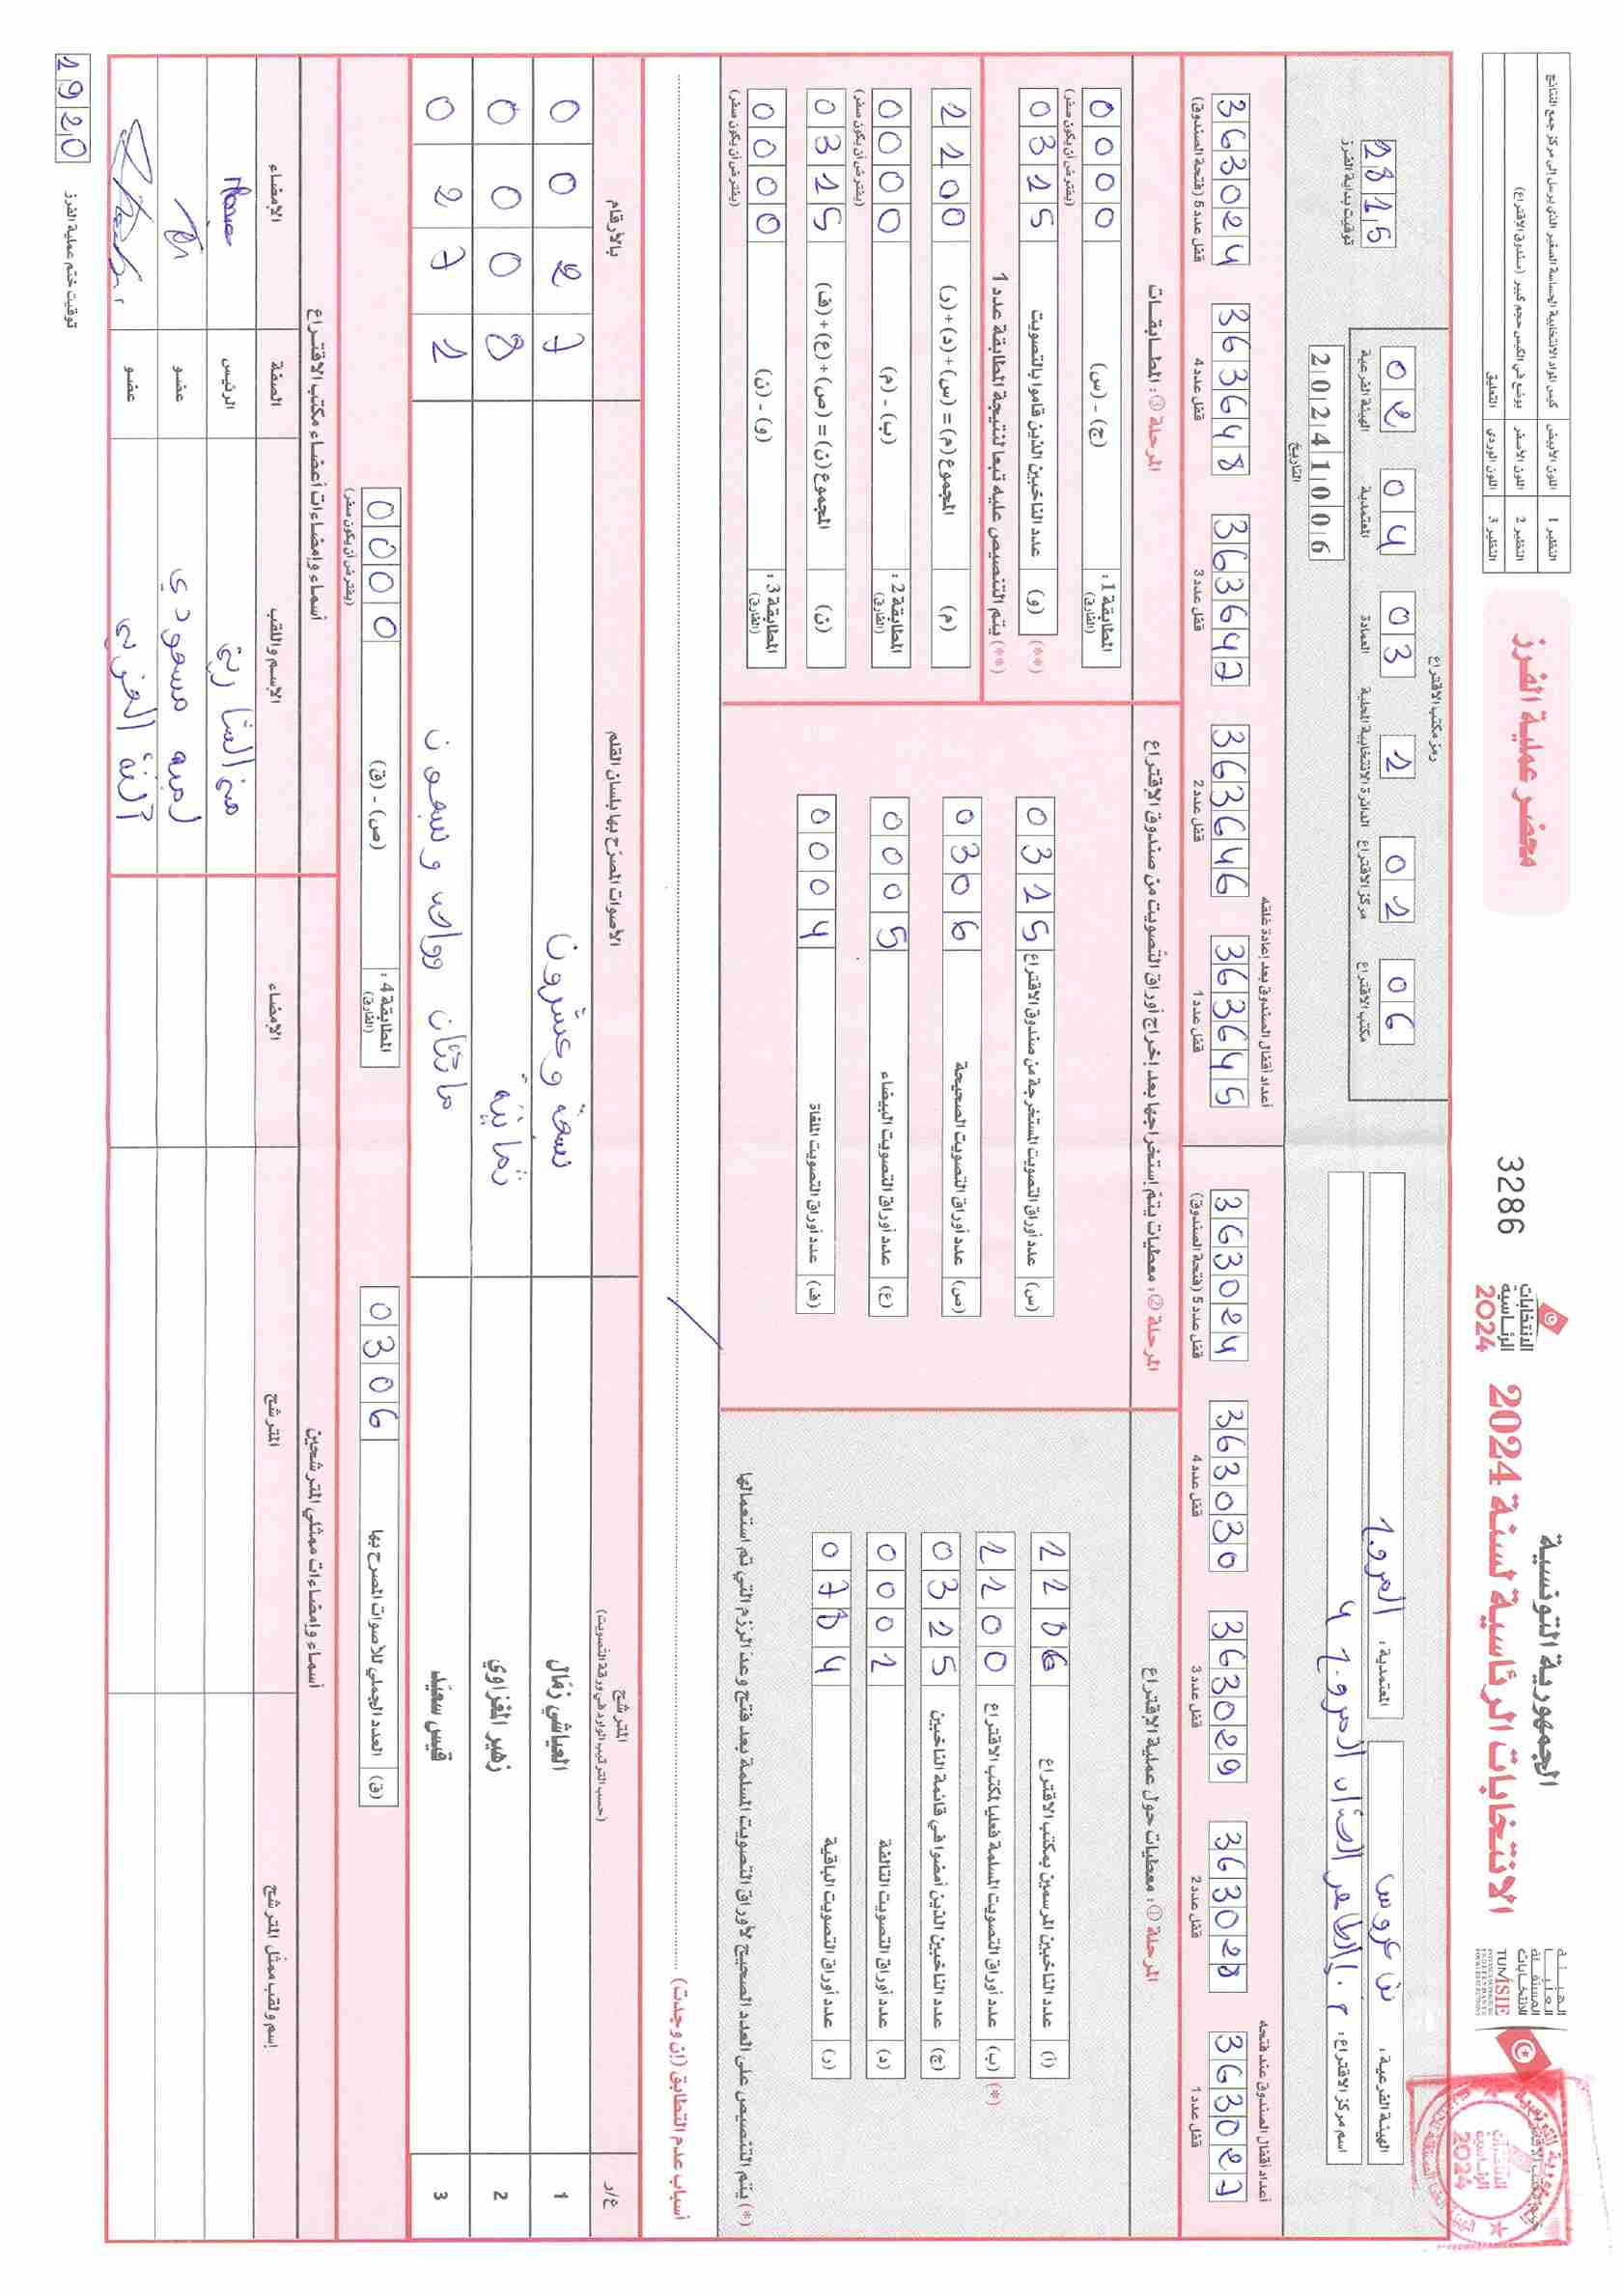 الجمهورية التونسية
الانتخابات الرئاسية لسنة 2024
الهيئة العليا المستقلة للانتخابات
TUNISIE
الانتخابات الرئاسية 2024
3286
محضر عملية الفرز
النظير 1 اللون الأبيض كيس المواد الانتخابية الحساسة الصغير الذي يرسل إلى مركز جمع النتائج
النظير 2 اللون الأصفر يوضع في الكيس حجم كبير (صندوق الاقتراع)
النظير 3 اللون الوردي التعليق
الهيئة الفرعية: بن عروس
المعتمدية: المروج
اسم مركز الاقتراع: م. الطاهر الحداد المروج 4
رمز مكتب الاقتراع
02 الهيئة الفرعية
04 المعتمدية
03 العمادة
1 الدائرة الانتخابية المحلية
01 مركز الاقتراع
06 مكتب الاقتراع
20241006
التاريخ
1815
توقيت بداية الفرز
أعداد أقفال الصندوق عند فتحه
363027 قفل عدد 1
363028 قفل عدد 2
363029 قفل عدد 3
363030 قفل عدد 4
363024 قفل عدد 5 (فتحة الصندوق)
أعداد أقفال الصندوق بعد إعادة غلقه
363645 قفل عدد 1
363646 قفل عدد 2
363647 قفل عدد 3
363648 قفل عدد 4
363024 قفل عدد 5 (فتحة الصندوق)
المرحلة ①: معطيات حول عملية الاقتراع
(أ) عدد الناخبين المرسمين بمكتب الاقتراع 1186
(*) (ب) عدد أوراق التصويت المسلمة فعليا لمكتب الاقتراع 1100
(ج) عدد الناخبين الذين أمضوا في قائمة الناخبين 0315
(د) عدد أوراق التصويت التالفة 0001
(ر) عدد أوراق التصويت الباقية 0784
(*) يتم التنصيص على العدد الصحيح لأوراق التصويت المسلمة بعد فتح وعد الرزم التي تم استعمالها
المرحلة ②: معطيات يتم إستخراجها بعد إخراج أوراق التصويت من صندوق الاقتراع
(س) عدد أوراق التصويت المستخرجة من صندوق الاقتراع 0315
(ص) عدد أوراق التصويت الصحيحة 0306
(ع) عدد أوراق التصويت البيضاء 0005
(ف) عدد أوراق التصويت الملغاة 0004
المرحلة ③: المطابقات
المطابقة 1: (الفارق) (ج) - (س) 0000
(يفترض أن يكون صفر)
(**) (و) عدد الناخبين الذين قاموا بالتصويت 0315
(**) يتم التنصيص عليه تبعا لنتيجة المطابقة عدد 1
(م) المجموع (م) = (س) + (د) + (ر) 1100
المطابقة 2: (الفارق) (ب) - (م) 0000
(يفترض أن يكون صفر)
(ن) المجموع (ن) = (ص) + (ع) + (ف) 0315
المطابقة 3: (الفارق) (و) - (ن) 0000
(يفترض أن يكون صفر)
أسباب عدم التطابق (إن وجدت)
ع/ر المترشح (حسب الترتيب الوارد في ورقة التصويت) الأصوات المصرح بها بلسان القلم بالأرقام
1 العياشي زمّال سبعة وعشرون 0027
2 زهير المغزاوي ثمانية 0008
3 قيس سعيّد مائتان وواحد وسبعون 0271
(ق) العدد الجملي للأصوات المصرح بها 0306
المطابقة 4: (الفارق) (ص) - (ق) 0000
(يفترض أن يكون صفر)
أسماء وإمضاءات ممثلي المترشحين
إسم ولقب ممثل المترشح المترشح الإمضاء
أسماء وإمضاءات أعضاء مكتب الاقتراع
الإسم واللقب الصفة الإمضاء
الرئيس
لمياء مسعودي عضو
عضو
1920
توقيت ختم عملية الفرز